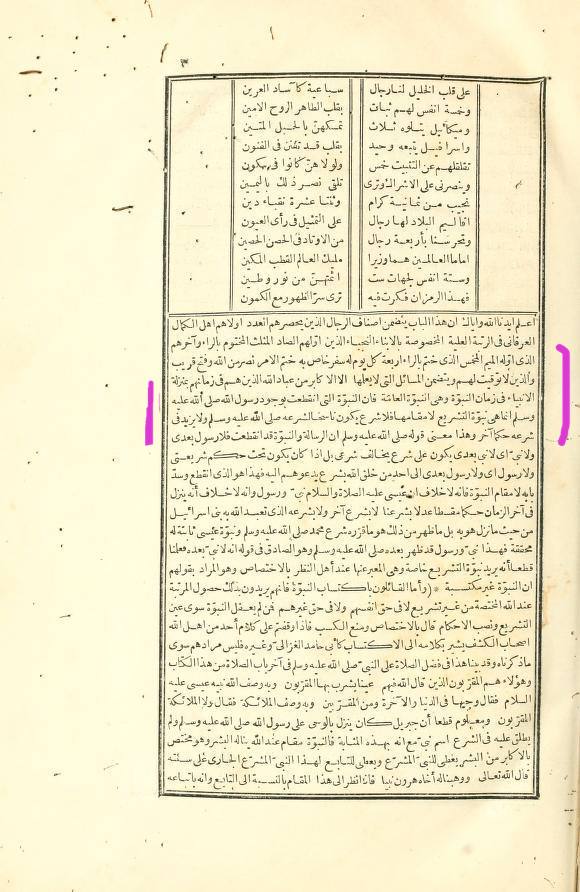 ٣
على قلب الخليل لنا رجال سباعية كآساد العرين
وخمسة انفس لهم ثبات بقلب الطاهر الروح الامين
وميكائيل يتلوه ثلاث تمسكهن بالحبل المتين
واسرافيل يتبعه وحيد بقلب قد تفنن فى الفنون
تقلقلهم عن التثبيت خمس ولولاهن كانوا فى سكون
وينصرنى على الاشرار وترى تلقى نصر ذلك باليمين
نجيب من ثمانية كرام وثنتا عشرة نقباء دين
اقاليم البلاد لها رجال على التمثيل فى رأى العيون
وتحرسنا بأربعة رجال من الاوتاد فى الحصن الحصين
اماما العالمين هما وزيرا مليك العالم القطب المكين
وستة انفس لجهات ست ائمتهن من نور وطين
فهذا الرمز ان فكرت فيه ترى سر الظهور مع الكمون
اعلم ايدنا الله واياك ان هذا الباب يتضمن اصناف الرجال الذين يحصرهم العدد اولاهم اهل الكمال
العرفانى فى الرتبة العلية المخصوصة بالابناء النجباء الذين اولهم الصاد المثلث المختوم بالراء وآخرهم
الذى اوله الميم المخمس الذى ختم بالراء اربعة كل يوم له سفر خاص به ختم الامر نصر من الله وفتح قريب
والذين لا توقيت لهم ويتضمن المسائل التى لا يعلها الا الاكابر من عباد الله الذين هم فى زمانهم بمنزلة
الانبياء فى زمان النبوة وهى النبوة العامة فان النبوة التى انقطعت بوجود رسول الله صلى الله عليه
وسلم انما هى نبوة التشريع لا مقامها فلا شرع يكون ناسخا لشرعه صلى الله عليه وسلم ولا يزيد فى
شرعه حكما آخر وهذا معنى قوله صلى الله عليه وسلم ان الرسالة والنبوة قد انقطعت فلا رسول بعدى
ولا نبى اى لا نبى بعدى يكون على شرع يخالف شرعى بل اذا كان يكون تحت حكم شريعتى
ولا رسول اى ولا رسول بعدى الى احد من خلق الله بشرع يدعوهم اليه فهذا هو الذى انقطع وسد
بابه لا مقام النبوة فانه لا خلاف ان عيسى عليه الصلاة والسلام نبى ورسول وانه لا خلاف أنه ينزل
فى آخر الزمان حكما مقسطا عدلا بشرعنا لا بشرع آخر ولا بشرعه الذى تعبد الله به بنى اسرائيل
من حيث ما نزل هو به بل ما ظهر من ذلك هو ما قرره شرع محمد صلى الله عليه وسلم ونبوة عيسى ثابتة له
محققة فهذا نبى ورسول قد ظهر بعده صلى الله عليه وسلم وهو الصادق فى قوله انه لا نبى بعده فعلمنا
قطعا أنه يريد نبوة التشريع خاصة وهى المعبر عنها عند أهل النظر بالاختصاص وهو المراد بقولهم
ان النبوة غير مكتسبة * (وأما القائلون باكتساب النبوة فانهم يريدون بذلك حصول المرتبة
عند الله المختصة من غير تشريع لا فى حق انفسهم ولا فى حق غيرهم فمن لم يعقل النبوة سوى عين
التشريع ونصب الاحكام قال بالاختصاص ومنع الكسب فاذا وقفتم على كلام أحد من اهل الله
اصحاب الكشف يشير بكلامه الى الاكتساب كأبى حامد الغزالى وغيره فليس مرادهم سوى
ما ذكرناه وقد بينا هذا فى فضل الصلاة على النبى صلى الله عليه وسلم فى آخر باب الصلاة من هذا الكتاب
وهؤلاء هم المقربون الذين قال الله فيهم عينا يشرب بها المقربون وبه وصف الله نبيه عيسى عليه
السلام فقال وجيها فى الدنيا والآخرة ومن المقربين وبه وصف الملائكة فقال ولا الملائكة
المقربون ومعلوم قطعا أن جبريل كان ينزل بالوحى على رسول الله صلى الله عليه وسلم ولم
يطلق عليه فى الشرع اسم نبى مع انه بهذه المثابة فالنبوة مقام عند الله يناله البشر وهو مختص
بالاكابر من البشر يعطى للنبى المشرع ويعطى للتابع لهذا النبى المشرع الجارى على سنته
قال الله تعالى ووهبنا له أخاه هرون نبيا فاذا نظر الى هذا المقام بالنسبة الى التابع وانه باتباعه